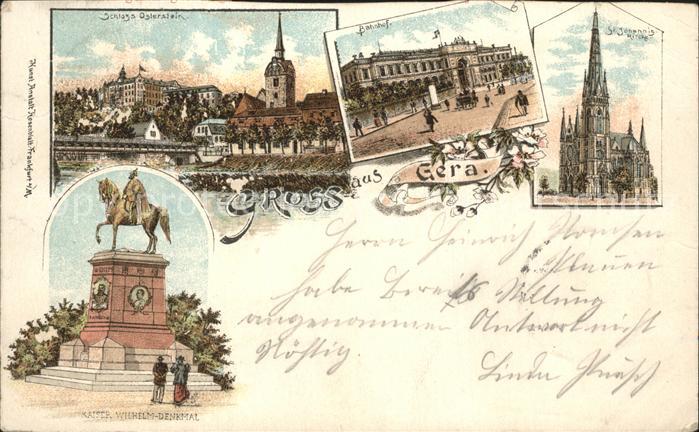 Schloss Osterstein.
Bahnhof.
St. Johannis
Kirche.
Kunst Anstalt Rosenblatt Frankfurt a/M.
Gruss aus Gera.
KAISER WILHELM-DENKMAL
Herrn Heinrich
Plauen
habe Bereits Stellung
angenommen Antwort nicht
Nöhtig.
Linda